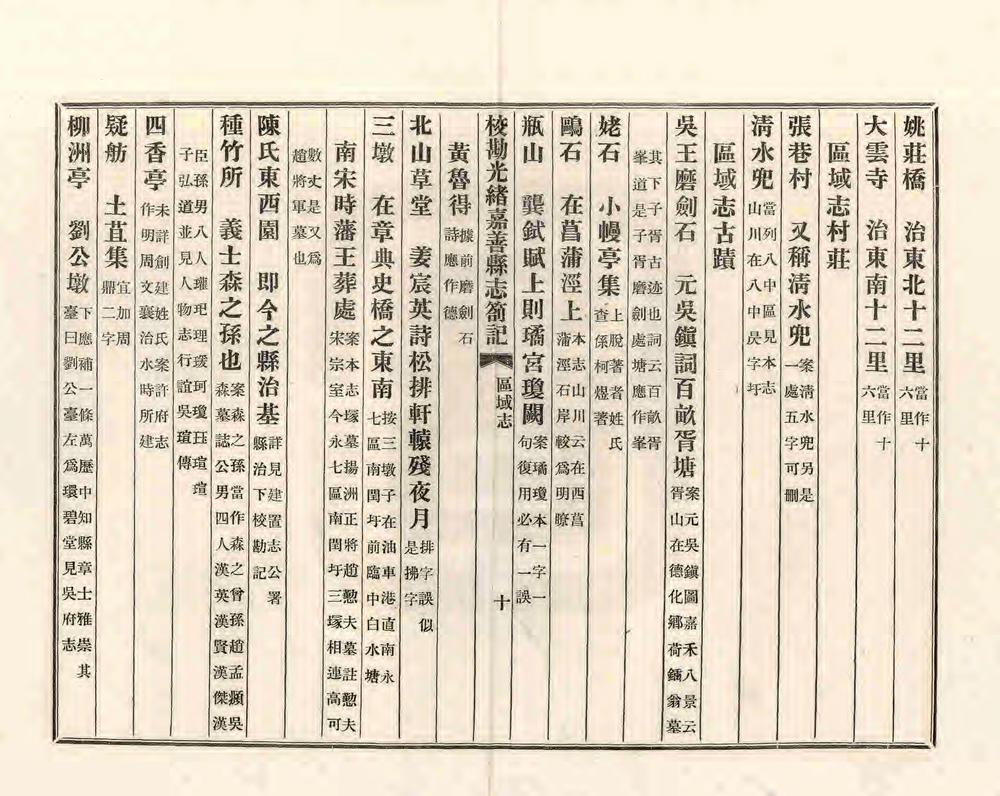 姚莊橋　治東北十二里當作十六里
大雲寺　治東南十二里當作十六里
區域志村莊
張巷村　又稱清水兜案清水兜另是一處五字可刪
清水兜當列八中區見本志山川在八中昃字圩
區域志古蹟
吳王磨劍石　元吳鎮詞百畝胥塘案元吳鎮圖嘉禾八景云胥山在德化鄉荷鍤翁墓
其下子胥古迹也詞云百畝胥峯道是子胥磨劍處塘應作峯
姥石　小幔亭集上脫著者姓氏查係柯煜著
鷗石　在菖蒲涇上本志山川云在西菖蒲涇石岸較爲明瞭
瓶山　龔鉽賦上則璚宮瓊闕案璚瓊本一字一句復用必有一誤
校勘光緒嘉善縣志劄記　區域志　十
黃魯得據前磨劍石詩應作德
北山草堂　姜宸英詩松排軒轅殘夜月排字誤似是拂字
三墩　在章典史橋之東南按三墩子在油車港直南永七區南閏圩前臨中白水塘
南宋時藩王葬處案本志塚墓揚洲正將趙懃夫墓註懃夫宋宗室今永七區南閏圩三塚相連高可
數丈是又爲趙將軍墓也
陳氏東西園　即今之縣治基詳見建置志公署縣治下校勘記
種竹所　義士森之孫也案森之孫當作森之曾孫趙孟頫吳森墓誌公男四人漢英漢賢漢傑漢
臣孫男八人瓘玘理瑗珂瓊珏瑄瑄子弘道並見人物志行誼吳瑄傳
四香亭未詳創建姓氏案許府志作明周文襄治水時所建
疑舫　土苴集宜加周鼎二字
柳洲亭　劉公墩下應補一條萬歷中知縣章士雅崇其臺曰劉公臺左爲環碧堂見吳府志